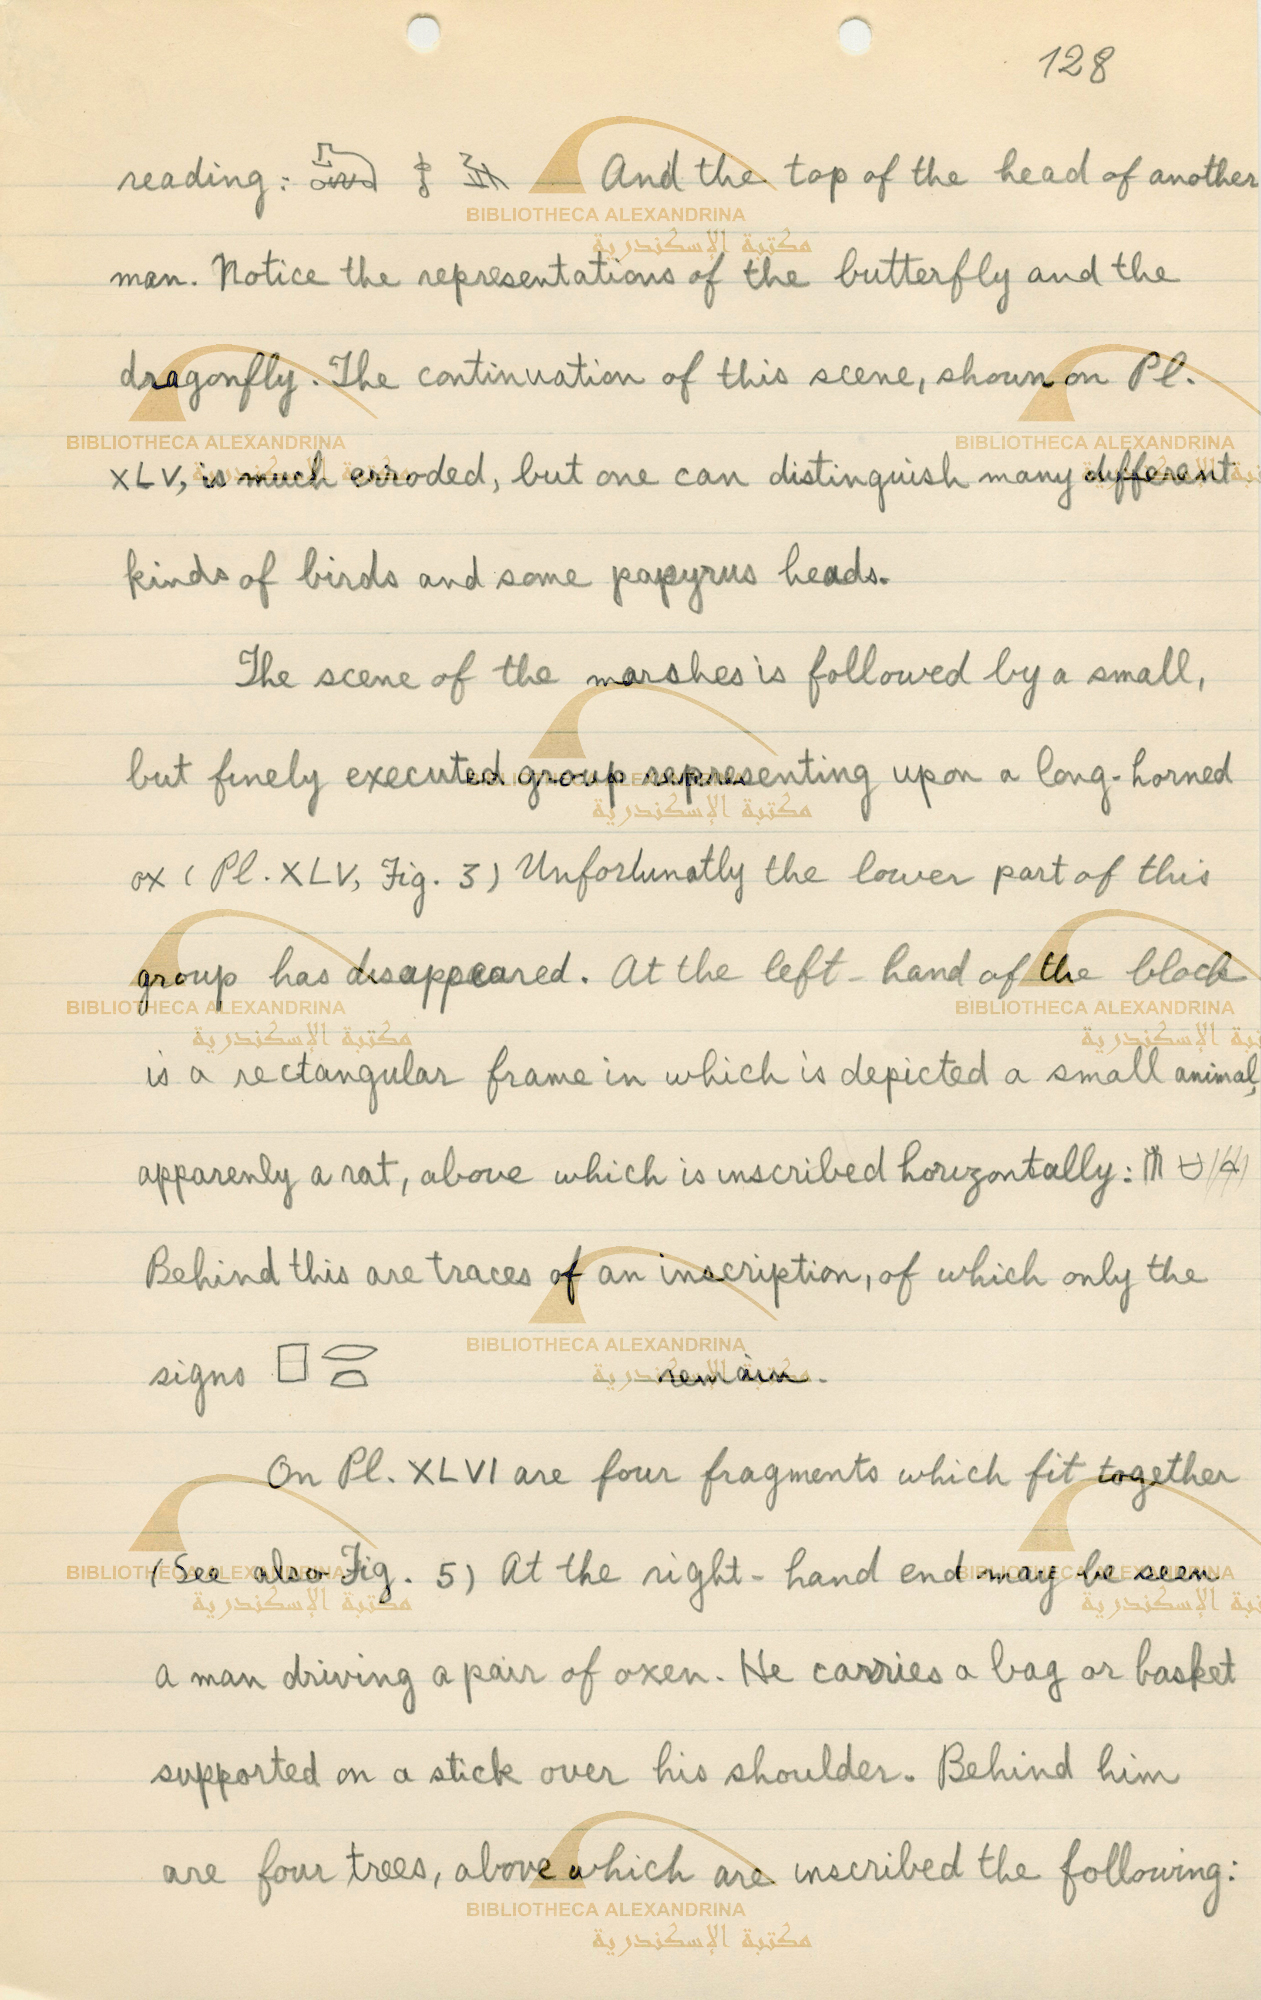 128
reading: And the top of the head of another
man. Notice the representations of the butterfly and the
dragonfly. The continuation of this scene, shown on Pl.
XLV, is much erroded, but one can distinguish many different
kinds of birds and some papyrus heads.
The scene of the marshes is followed by a small,
but finely executed group representing upon a long-horned
ox (Pl. XLV, Fig. 3) Unfortunatly the lower part of this
group has disappeared. At the left-hand of the block
is a rectangular frame in which is depicted a small animal,
apparenly a rat, above which is inscribed horizontally:
Behind this are traces of an inscription, of which only the
signs remain.
On Pl. XLVI are four fragments which fit together
(See also Fig. 5) At the right-hand end may be seen
a man driving a pair of oxen. He carries a bag or basket
supported on a stick over his shoulder. Behind him
are four trees, above which are inscribed the following:
BIBLIOTHECA ALEXANDRINA
مكتبة الإسكندرية